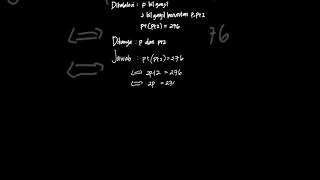 Diketahui : p bil ganjil
2 bil ganjil berurutan p, p+2
p+(p+2) = 276
⟺ 76
Ditanya : p dan p+2
⟺
Jawab : p+(p+2) = 276
⟺ 2p+2 = 276
⟺ 2p = 27